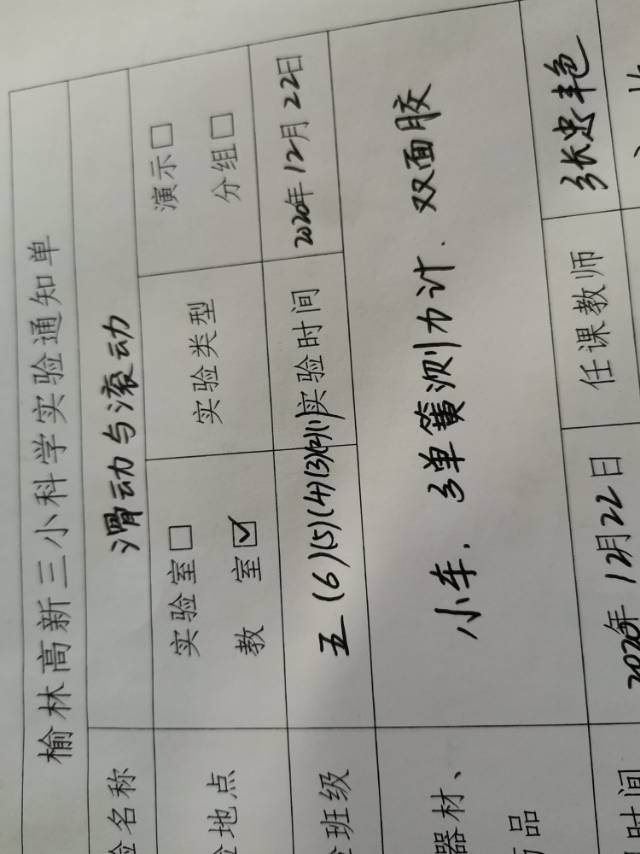 榆林高新三小科学实验通知单
验名称 滑动与滚动
验地点 实验室□ 教 室☑ 实验类型 演示□ 分组□
验班级 五(6)(5)(4)(3)(2)(1) 实验时间 2020年12月22日
器材、 小车. 弹簧测力计. 双面胶
品
时间 2020年12月22日 任课教师 张忠艳